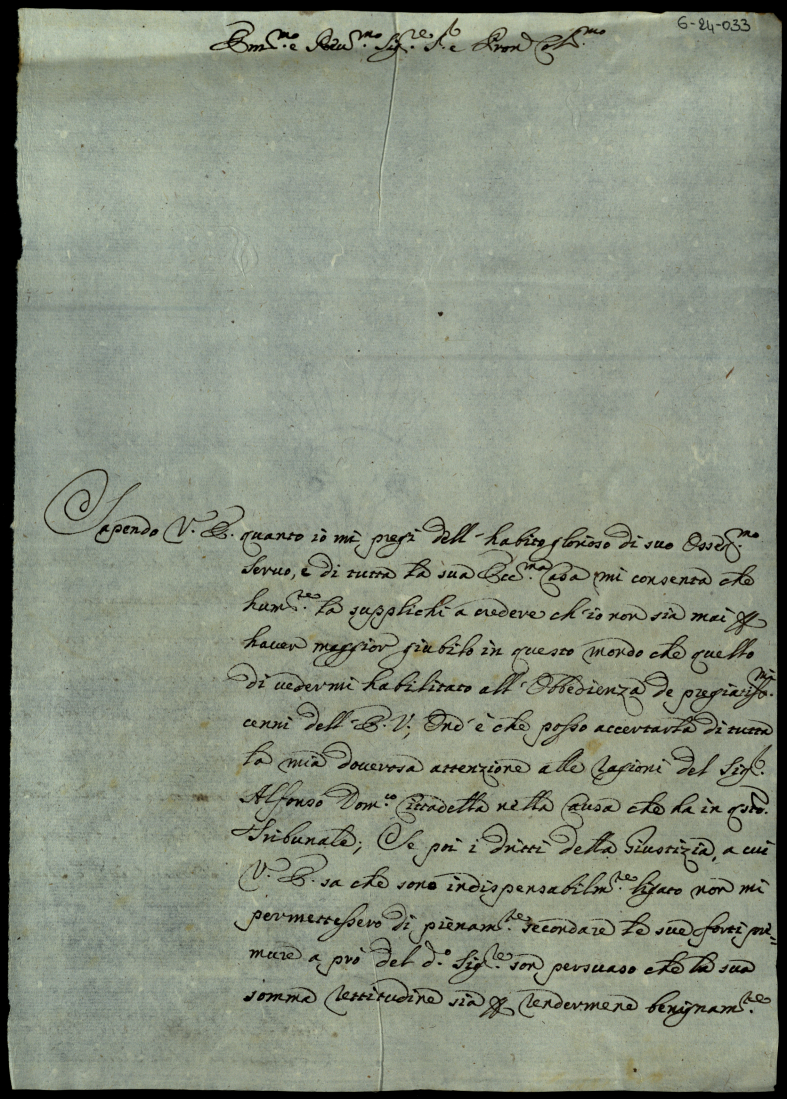 6-24-033
Em.mo e Reu.mo Sig.re S.r e Pron Col.mo
Sapendo V. E. quanto io mi pregi dell' habito glorioso di suo Osseq.mo
seruo, e di tutta la sua Ecc.ma Casa mi consenta che
hum.te la supplichi a credere ch'io non sia mai p
hauer maggior giubilo in questo mondo che quello
di uedermi habilitato all' Obbedienza de pregiatiss.mi
cenni dell' E. V., Ond' è che posso accertarla di tutta
la mia douerosa attenzione alle ragioni del Sig.r
Alfonso Dom.co Cittadella nella causa che ha in qsto
Tribunale; Se poi i dritti della Giustizia, a cui
V. E. sa che sono indispensabilm.te ligato non mi
permettessero di pienam.te secondare le sue forti pre=
mure a prò del d.o Sig.re son persuaso che la sua
somma rettitudine sia p rendermene benignam.te